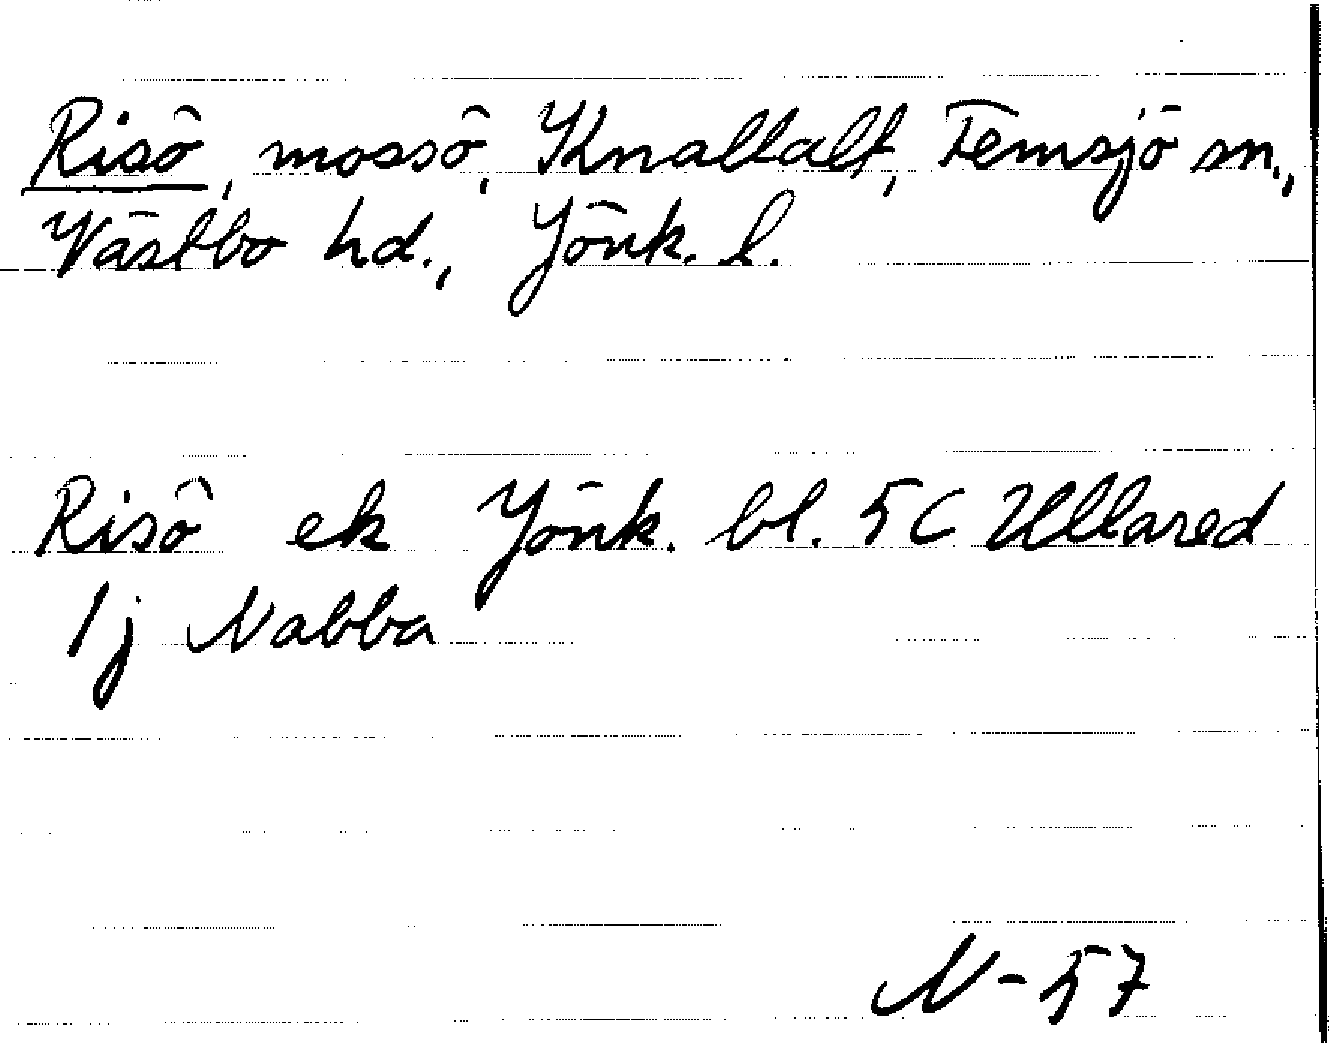 Risö, mossö, Knallalt, Femsjö sn.,
Västbo hd., Jönk. l.
Risö ek Jönk. bl. 5C Ullared
1j Nabba
N-57